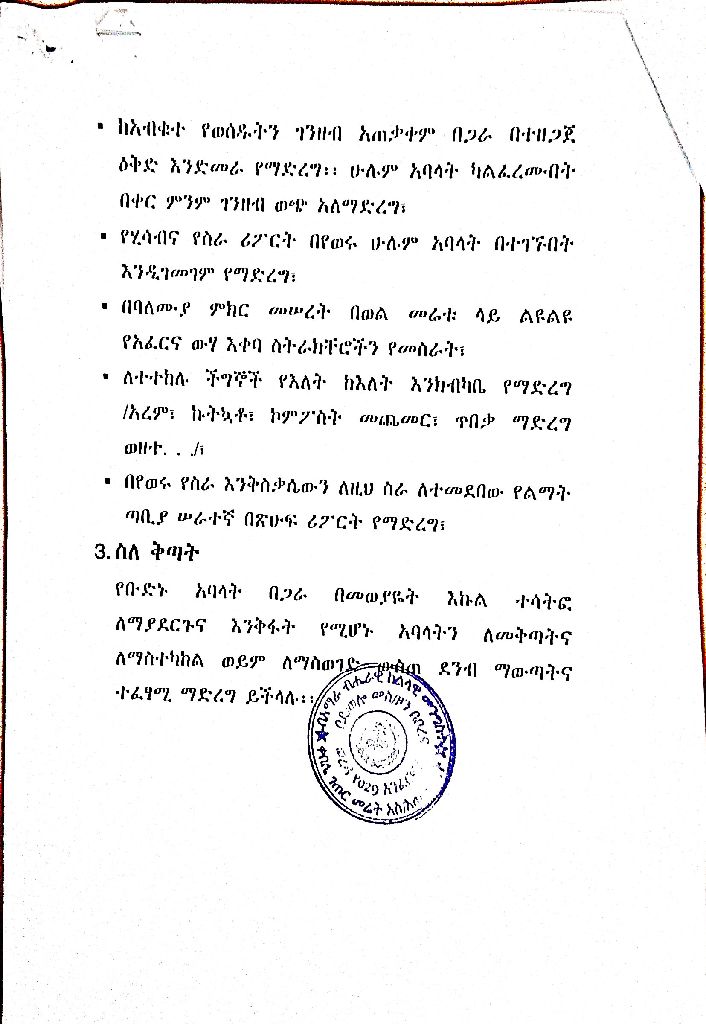 ▪ ከአብቁተ የወሰዱትን ገንዘብ አጠቃቀም በጋራ በተዘጋጀ
ዕቅድ እንድመራ የማድረግ፡፡ ሁሉም አባላት ካልፈረሙበት
በቀር ምንም ገንዘብ ወጭ አለማድረግ፣
▪ የሂሳብና የስራ ሪፖርት በየወሩ ሁሉም አባላት በተገኙበት
እንዲገመገም የማድረግ፣
▪ በባለሙያ ምክር መሠረት በወል መሬቱ ላይ ልዩልዩ
የአፈርና ውሃ እቀባ ስትራክቸሮችን የመስራት፣
▪ ለተተከሉ ችግኞች የእለት ከእለት እንክብካቤ የማድረግ
/አረም፣ ኩትኳቶ፣ ኮምፖስት መጨመር፣ ጥበቃ ማድረግ
ወዘተ. . ./፣
▪ በየወሩ የስራ እንቅስቃሴውን ለዚህ ስራ ለተመደበው የልማት
ጣቢያ ሠራተኛ በጽሁፍ ሪፖርት የማድረግ፣
3. ስለ ቅጣት
የቡድኑ አባላት በጋራ በመወያየት እኩል ተሳትፎ
ለማያደርጉና እንቅፋት የሚሆኑ አባላትን ለመቅጣትና
ለማስተካከል ወይም ለማስወገድ ውስጠ ደንብ ማውጣትና
ተፈፃሚ ማድረግ ይችላሉ፡፡
በአማራ ብሔራዊ ክልላዊ መንግስት
በደ/ወሎ መስ/ዞን
ወረዳ የ029
ቀበሌ ገጠር መሬት አስ/አጠ